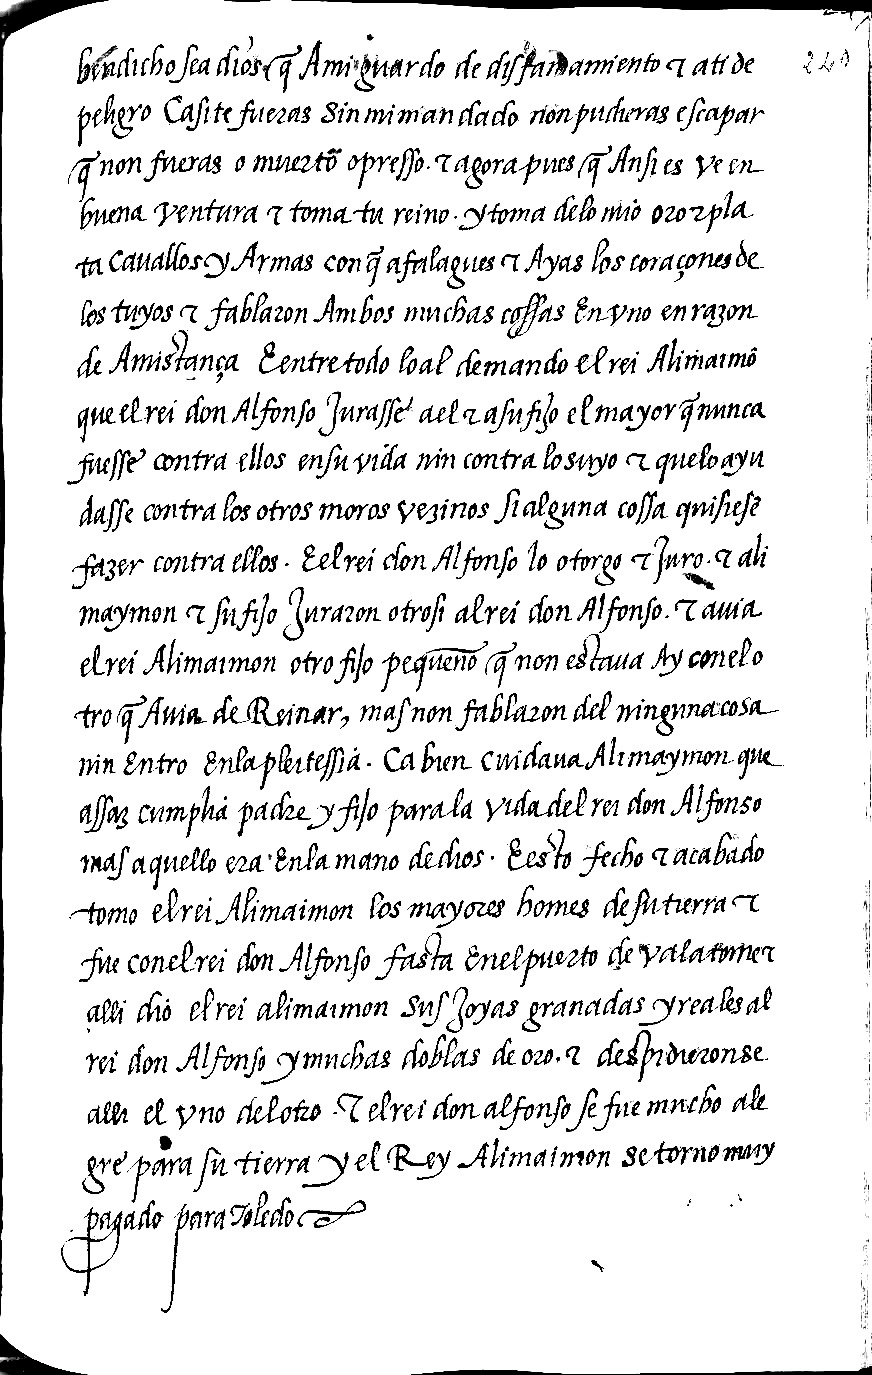 bendicho sea dios q̃ Ami guardo de disfamamiento ⁊ ati de 240
peligro Casite fueras Sin mi mandado non pudieras escapar
q̃ non fueras o muerto opresso. ⁊ agora pues q̃ Ansi es ve en
buena ventura ⁊ toma tu reino. y toma delo mio oro ⁊ pla
ta Cauallos y Armas con q̃ afalagues ⁊ Ayas los coraçones de
los tuyos ⁊ fablaron Ambos muchas cossas En vno en razon
de Amistança E entre todo lo al demando el rei Alimaimõ
que el rei don Alfonso Jurasse a el ⁊ a su fijo el mayor q̃ nunca
fuesse contra ellos en su vida nin contra lo suyo ⁊ que lo ayu
dasse contra los otros moros vezinos si alguna cossa quisiesẽ
fazer contra ellos. E el rei don Alfonso lo otorgo ⁊ Juro. ⁊ ali
maymon ⁊ su fijo Juraron otrosi al rei don Alfonso. ⁊ auia
el rei Alimaimon otro fijo pequeño q̃ non estaua Ay con el o
tro q̃ Auia de Reinar, mas non fablaron del ninguna cosa
nin Entro En la pleitessia. Ca bien cuidaua Alimaymon que
assaz cumplia padre y fijo para la vida del rei don Alfonso
mas aquello era En la mano de dios. E esto fecho ⁊ acabado
tomo el rei Alimaimon los mayores homes de su tierra ⁊
fue con el rei don Alfonso fasta En el puerto de valatome ⁊
alli dio el rei alimaimon Sus Joyas granadas y reales al
rei don Alfonso y muchas doblas de oro. ⁊ despidieronse
alli el vno del otro. ⁊ el rei don alfonso se fue mucho ale
gre para su tierra y el Rey Alimaimon se torno muy
pagado para Toledo